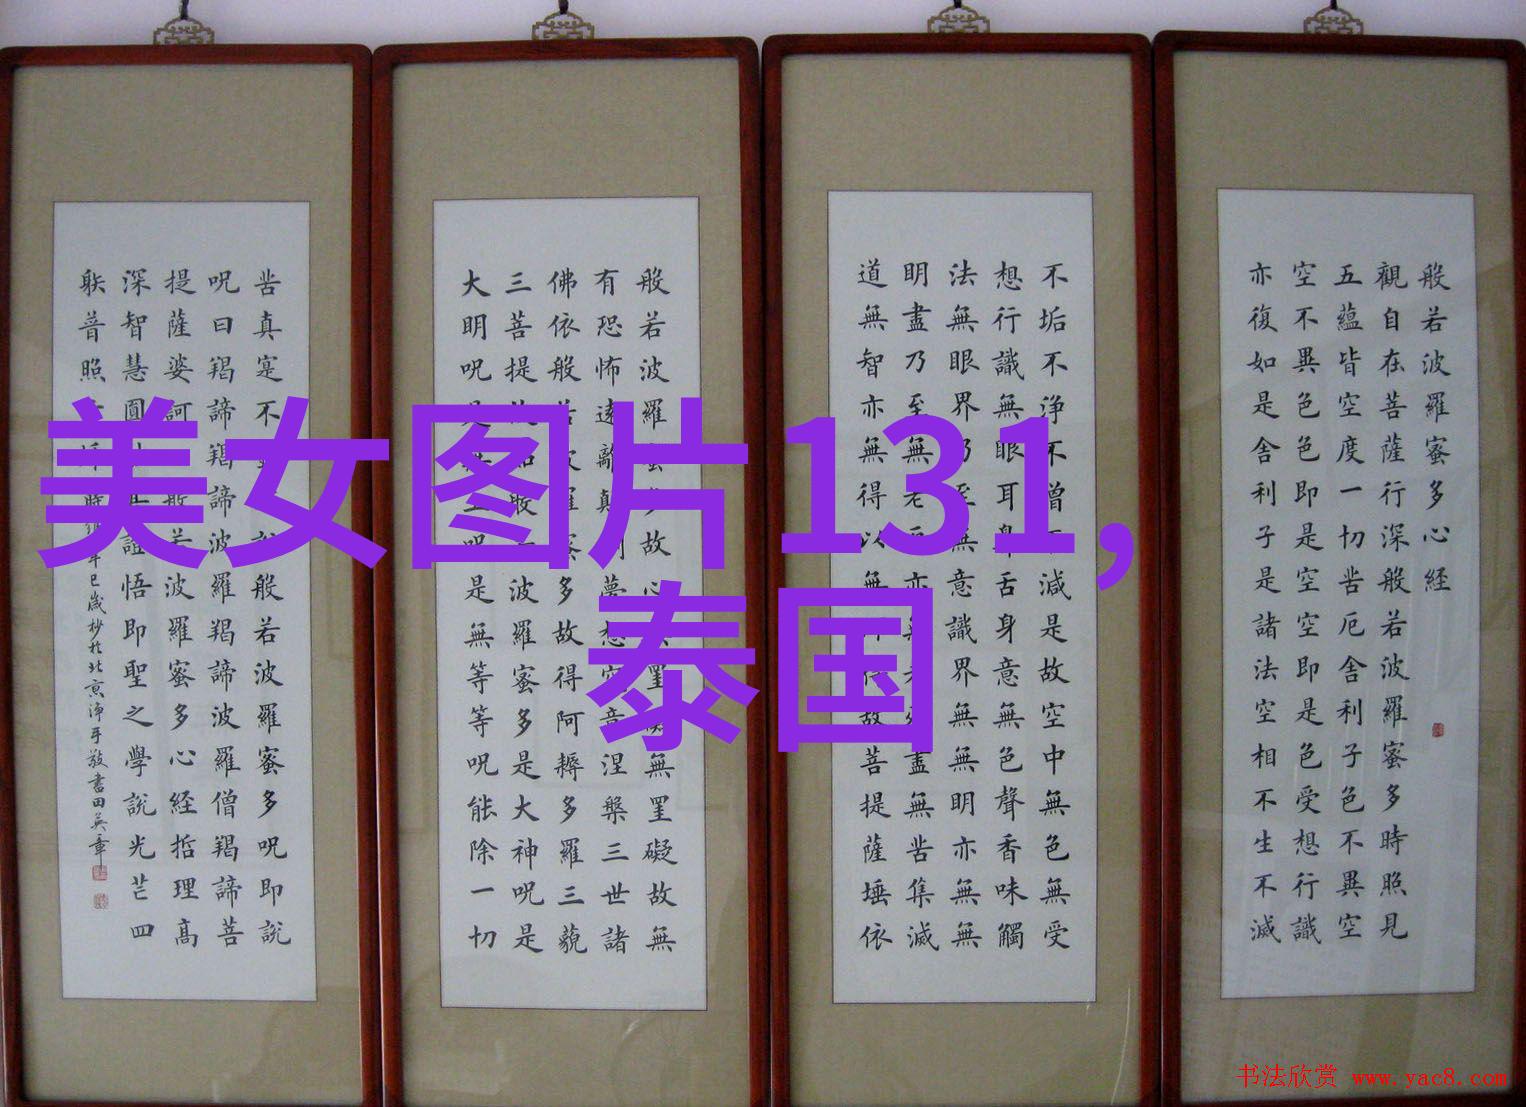 美女图片131,
泰国
般若波羅蜜多心経
觀自在菩薩行深般若波羅蜜多時照見
五蘊皆空度一切苦厄舍利子色不異空
空不異色色即是空空即是色受想行識
亦復如是舍利子是諸法空相不生不滅
不垢不浄不增不減是故空中無色無受
想行識無眼耳鼻舌身意無色聲香味觸
法無眼界乃至無意識界無無明亦無無
明盡乃至無老死亦無老死盡無苦集滅
道無智亦無得以無所得故菩提薩埵依
般若波羅蜜多故心無罣礙無罣礙故無
有恐怖遠離顛倒夢想究竟涅槃三世諸
佛依般若波羅蜜多故得阿耨多羅三藐
三菩提故知般若波羅蜜多是大神呪是
大明呪是無上呪是無等等呪能除一切
苦真寔不虛故說般若波羅蜜多呪即說
呪曰羯諦羯諦波羅羯諦波羅僧羯諦菩
提薩婆訶般若波羅蜜多心経哲理高
深智慧圓證悟即聖之學說光芒四
躲普照時辛巳歲杪於北京淨手敬書田英章
书法欣赏 www.yac8.com